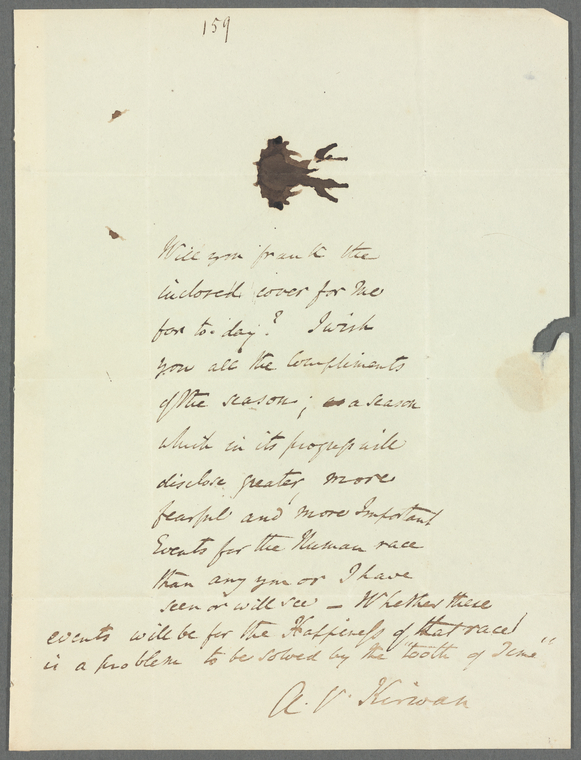 159
Will you frank the
inclosed cover for me
for to-day? I wish
you all the Compliments
of the season; a season
which in its progress will
disclose greater, more
fearful and more Important
Events for the Human race
than any you or I have
seen or will see — Whether these
events will be for the Happiness of that race
is a problem to be solved by the "tooth of Time"
A. V. Kirwan